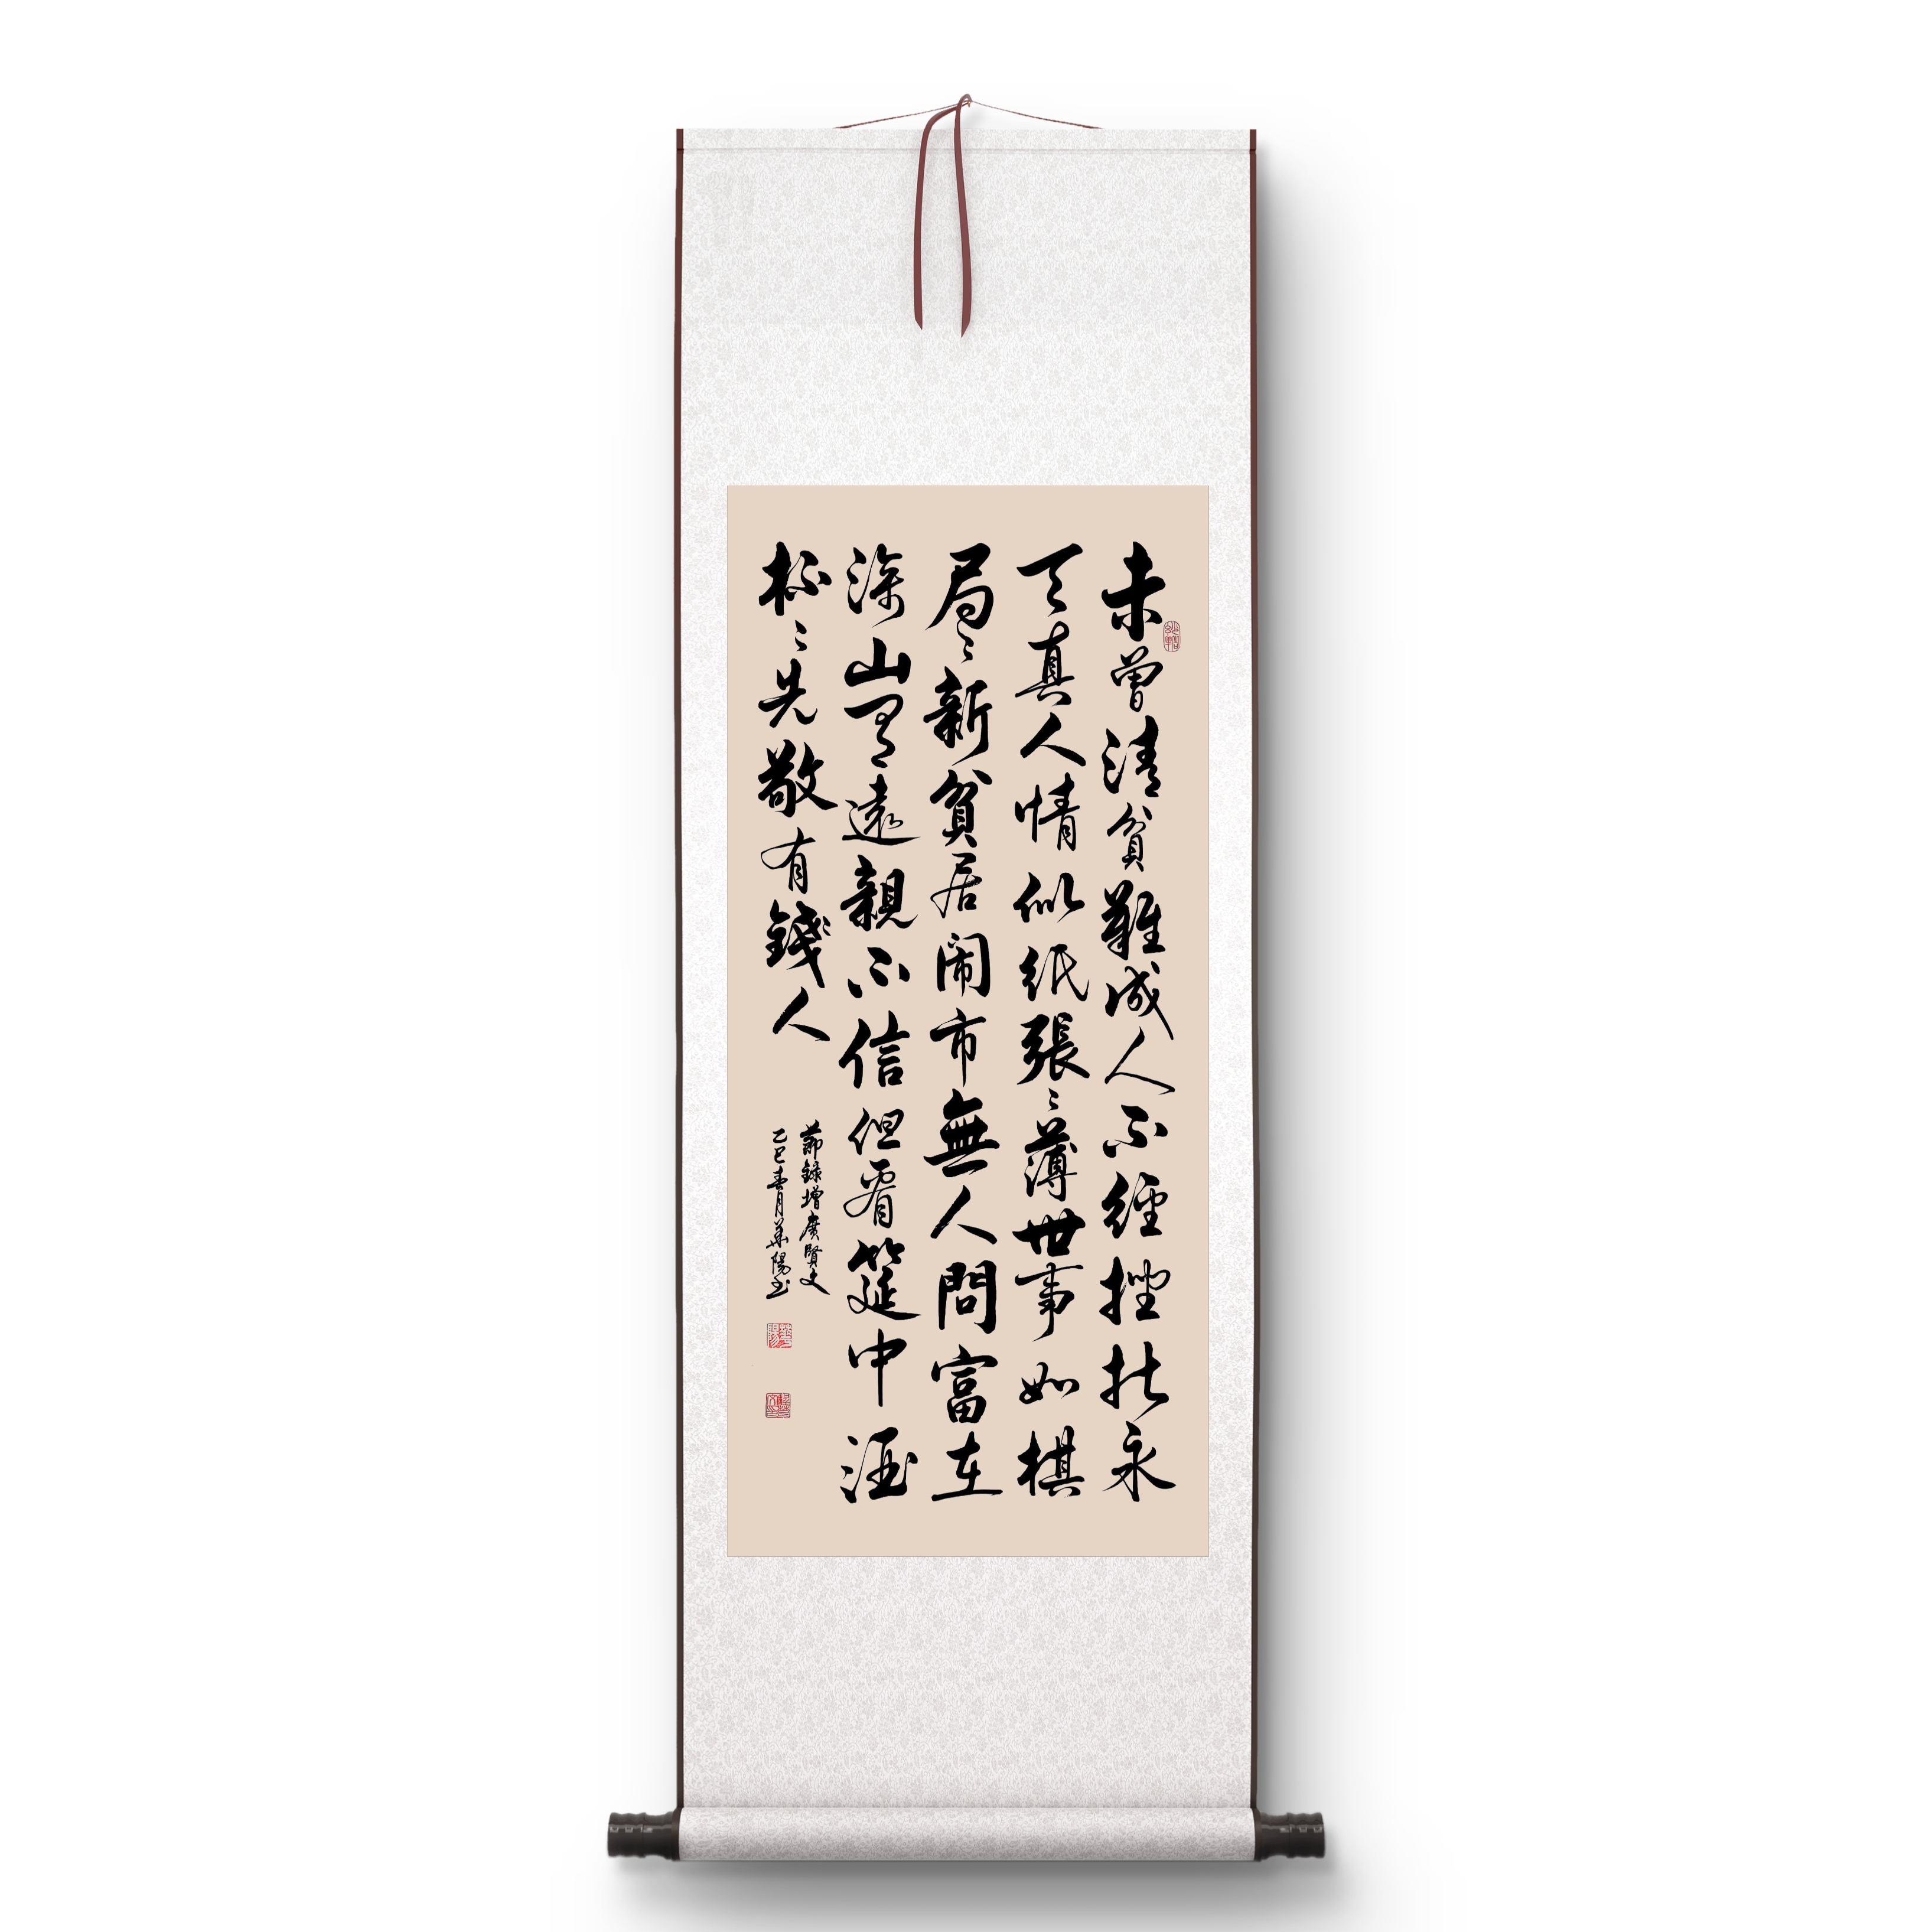 未曾清貧難成人不經挫折永
天真人情似紙張〻薄世事如棋
局〻新貧居闹市無人問富在
深山有遠親不信但看筵中酒
杯〻先敬有錢人
節録增廣賢文
乙巳青月華陽书